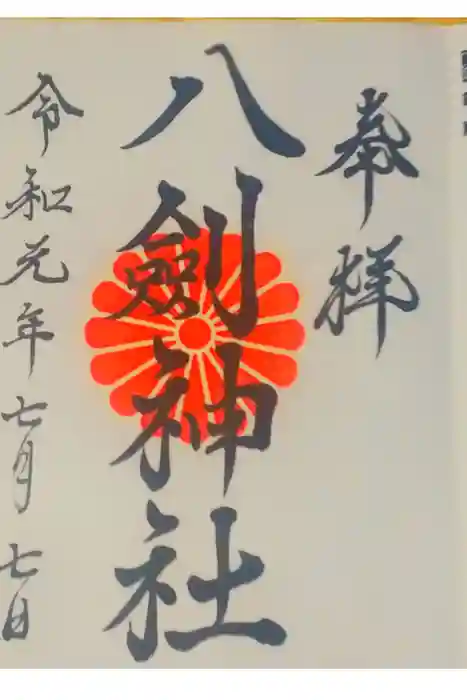 奉拝
八劔神社
令和元年七月七日